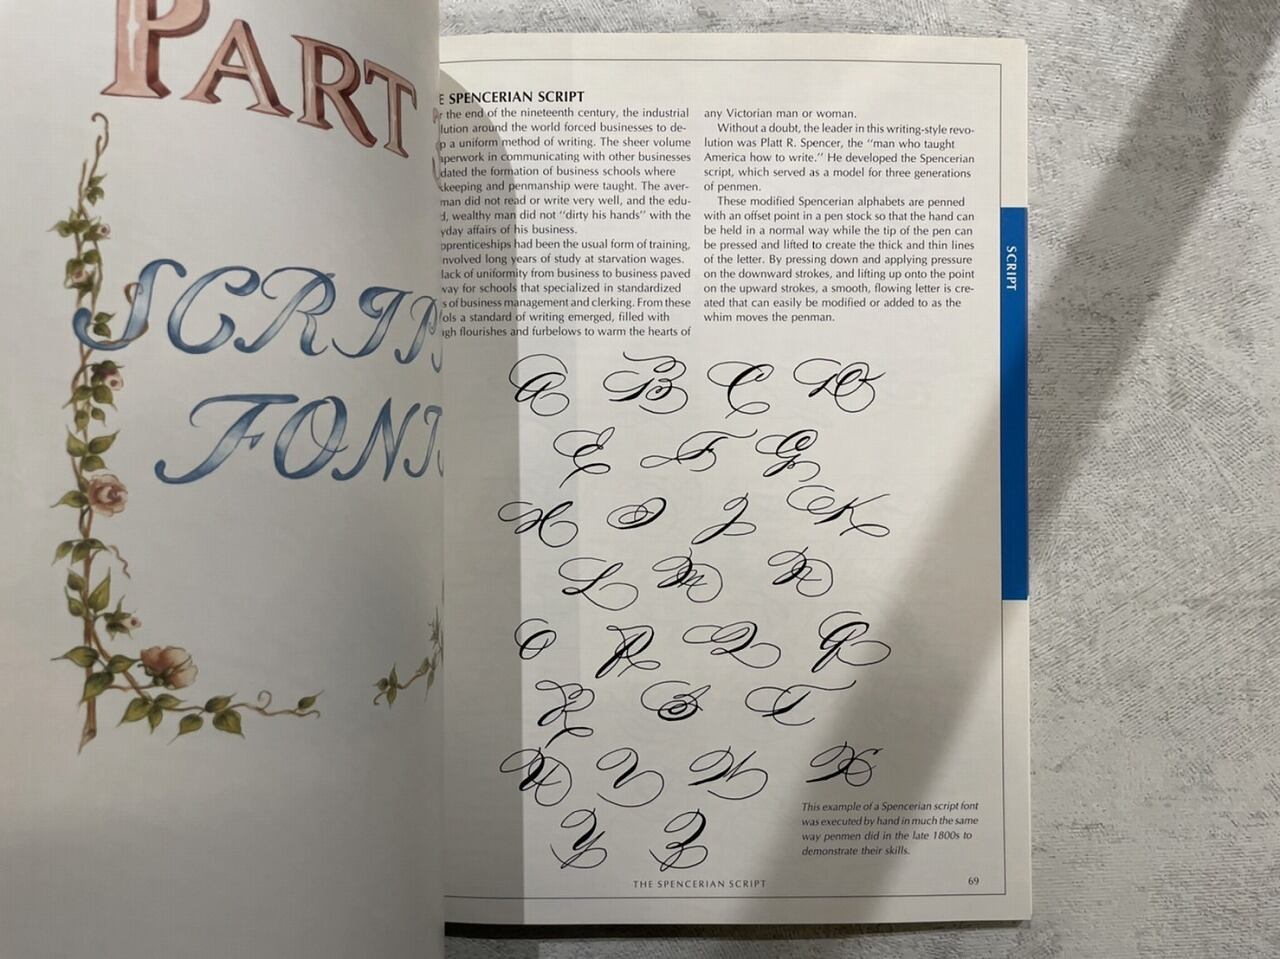 PART
SCRIP
FON
SPENCERIAN SCRIPT
the end of the nineteenth century, the industrial
lution around the world forced businesses to de-
a uniform method of writing. The sheer volume
aperwork in communicating with other businesses
dated the formation of business schools where
kkeeping and penmanship were taught. The aver-
man did not read or write very well, and the edu-
d, wealthy man did not "dirty his hands" with the
yday affairs of his business.
pprenticeships had been the usual form of training,
nvolved long years of study at starvation wages.
lack of uniformity from business to business paved
way for schools that specialized in standardized
s of business management and clerking. From these
ols a standard of writing emerged, filled with
gh flourishes and furbelows to warm the hearts of
any Victorian man or woman.
Without a doubt, the leader in this writing-style revo-
lution was Platt R. Spencer, the "man who taught
America how to write." He developed the Spencerian
script, which served as a model for three generations
of penmen.
These modified Spencerian alphabets are penned
with an offset point in a pen stock so that the hand can
be held in a normal way while the tip of the pen can
be pressed and lifted to create the thick and thin lines
of the letter. By pressing down and applying pressure
on the downward strokes, and lifting up onto the point
on the upward strokes, a smooth, flowing letter is cre-
ated that can easily be modified or added to as the
whim moves the penman.
SCRIPT
A B C D
E F G
H I J K
L M N
O P Q R
R S T
U V W X
Y Z
This example of a Spencerian script font
was executed by hand in much the same
way penmen did in the late 1800s to
demonstrate their skills.
THE SPENCERIAN SCRIPT 69